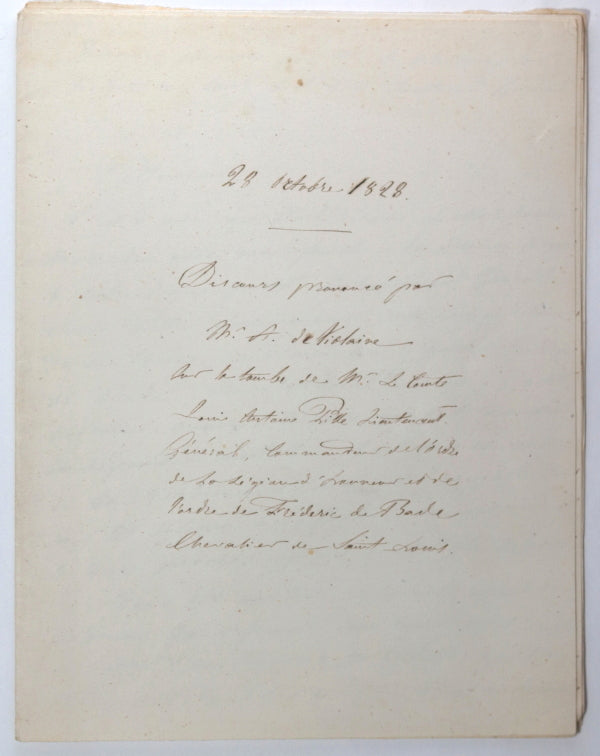 28 Octobre 1828.
Discours prononcé par
Mr. A. de Violaine
Sur la tombe de Mr. Le Comte
Louis Antoine Pille Lieutenant
Général, Commandeur de l'ordre
de La Légion d'honneur et de
l'ordre de Fréderic de Bade
Chevalier de Saint Louis.